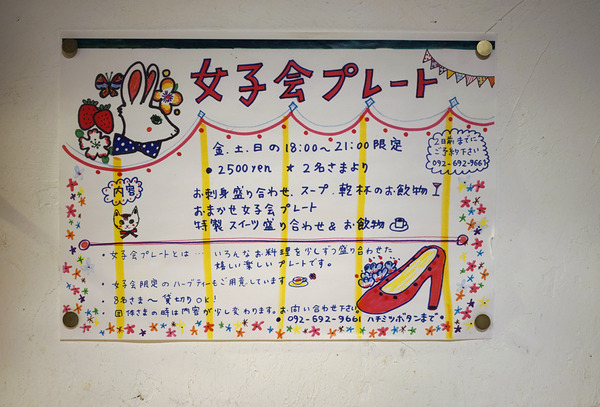 女子会プレート
金.土.日の18:00~21:00限定
2日前までに
ご予約下さい
092-692-9661
• 2500yen ★2名さまより
内容
お刺身盛り合わせ、スープ、乾杯のお飲物
おまかせ女子会プレート
特製スイーツ盛り合わせ&お飲物
• 女子会プレートとは…いろんなお料理を少しずつ盛り合わせた
嬉しい楽しいプレートです。
• 女子会限定のハーブティーもご用意しています
• 8名さま~貸切りOK!
団体さまの時は内容が少し変わります。お問い合わせ下さい
• 092-692-9661 ハチミツボタンまで•